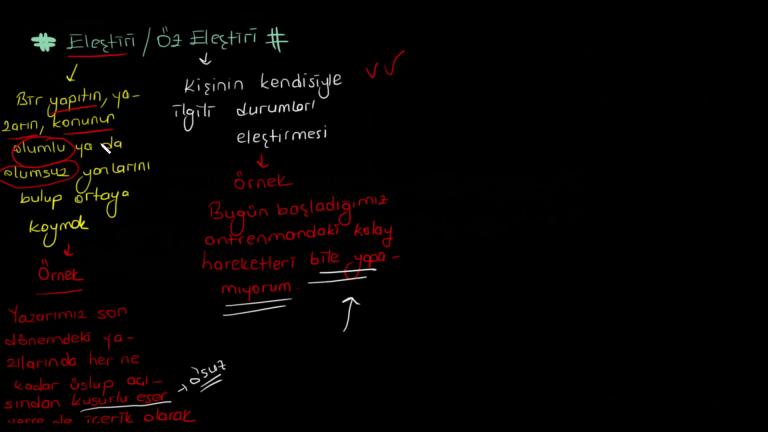 * Eleştiri / Öz Eleştiri #
Bir yapıtın, ya-
zarın, konunun
olumlu ya da
olumsuz yönlarını
bulup ortaya
koymak
Örnek
Yazarımız son
dönemdeki ya-
zılarında her ne
kadar üslup açı-
sından kusurlu eser
içerik olarak
ö'suz
Kişinin kendisiyle
ilgili durumları
eleştirmesi
Örnek
Bugün başladığımız
antrenmandaki kolay
hareketleri bile yapa-
mıyorum.